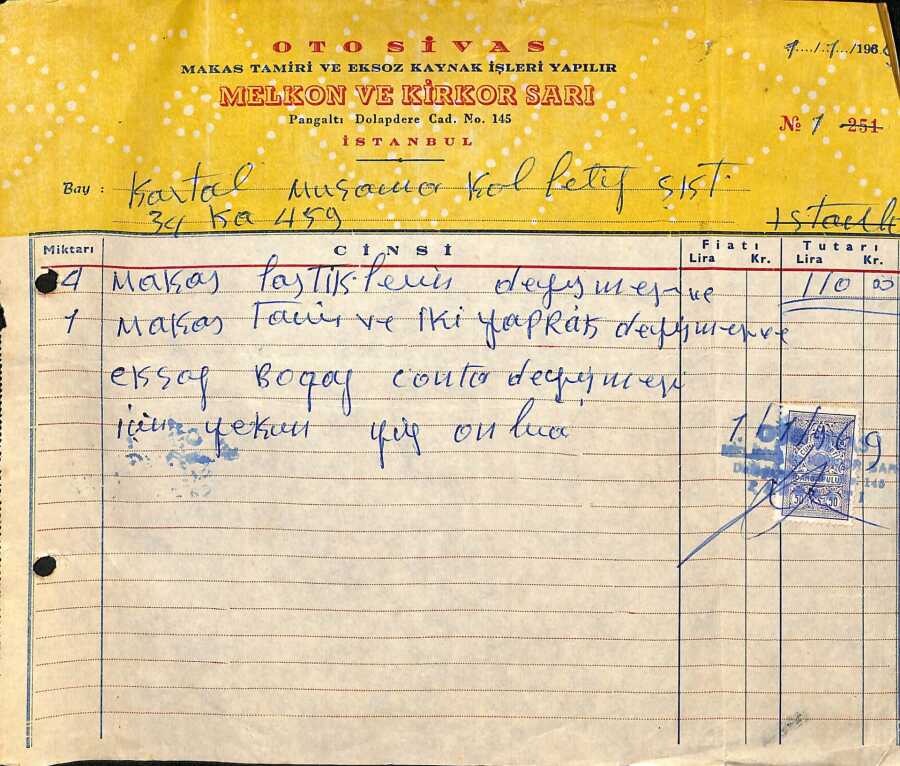 OTO SİVAS
MAKAS TAMİRİ VE EKSOZ KAYNAK İŞLERİ YAPILIR
MELKON VE KİRKOR SARI
Pangaltı Dolapdere Cad. No. 145
İSTANBUL
1/1/196
№ 1 251
Bay : Kartal Muşama Kolletif şişt.
34 Ka 459
istanb
Miktarı CİNSİ Fiatı Lira Kr. Tutarı Lira Kr.
4 Makas lastiklerin değişmesi ve 110 00
1 Makas Tamir ve iki yaprak değişmesi ve
eksoz Boğaz conta değişmesi
için yekun yüz on lira 1/1/969
DAMGA PULU
50 50